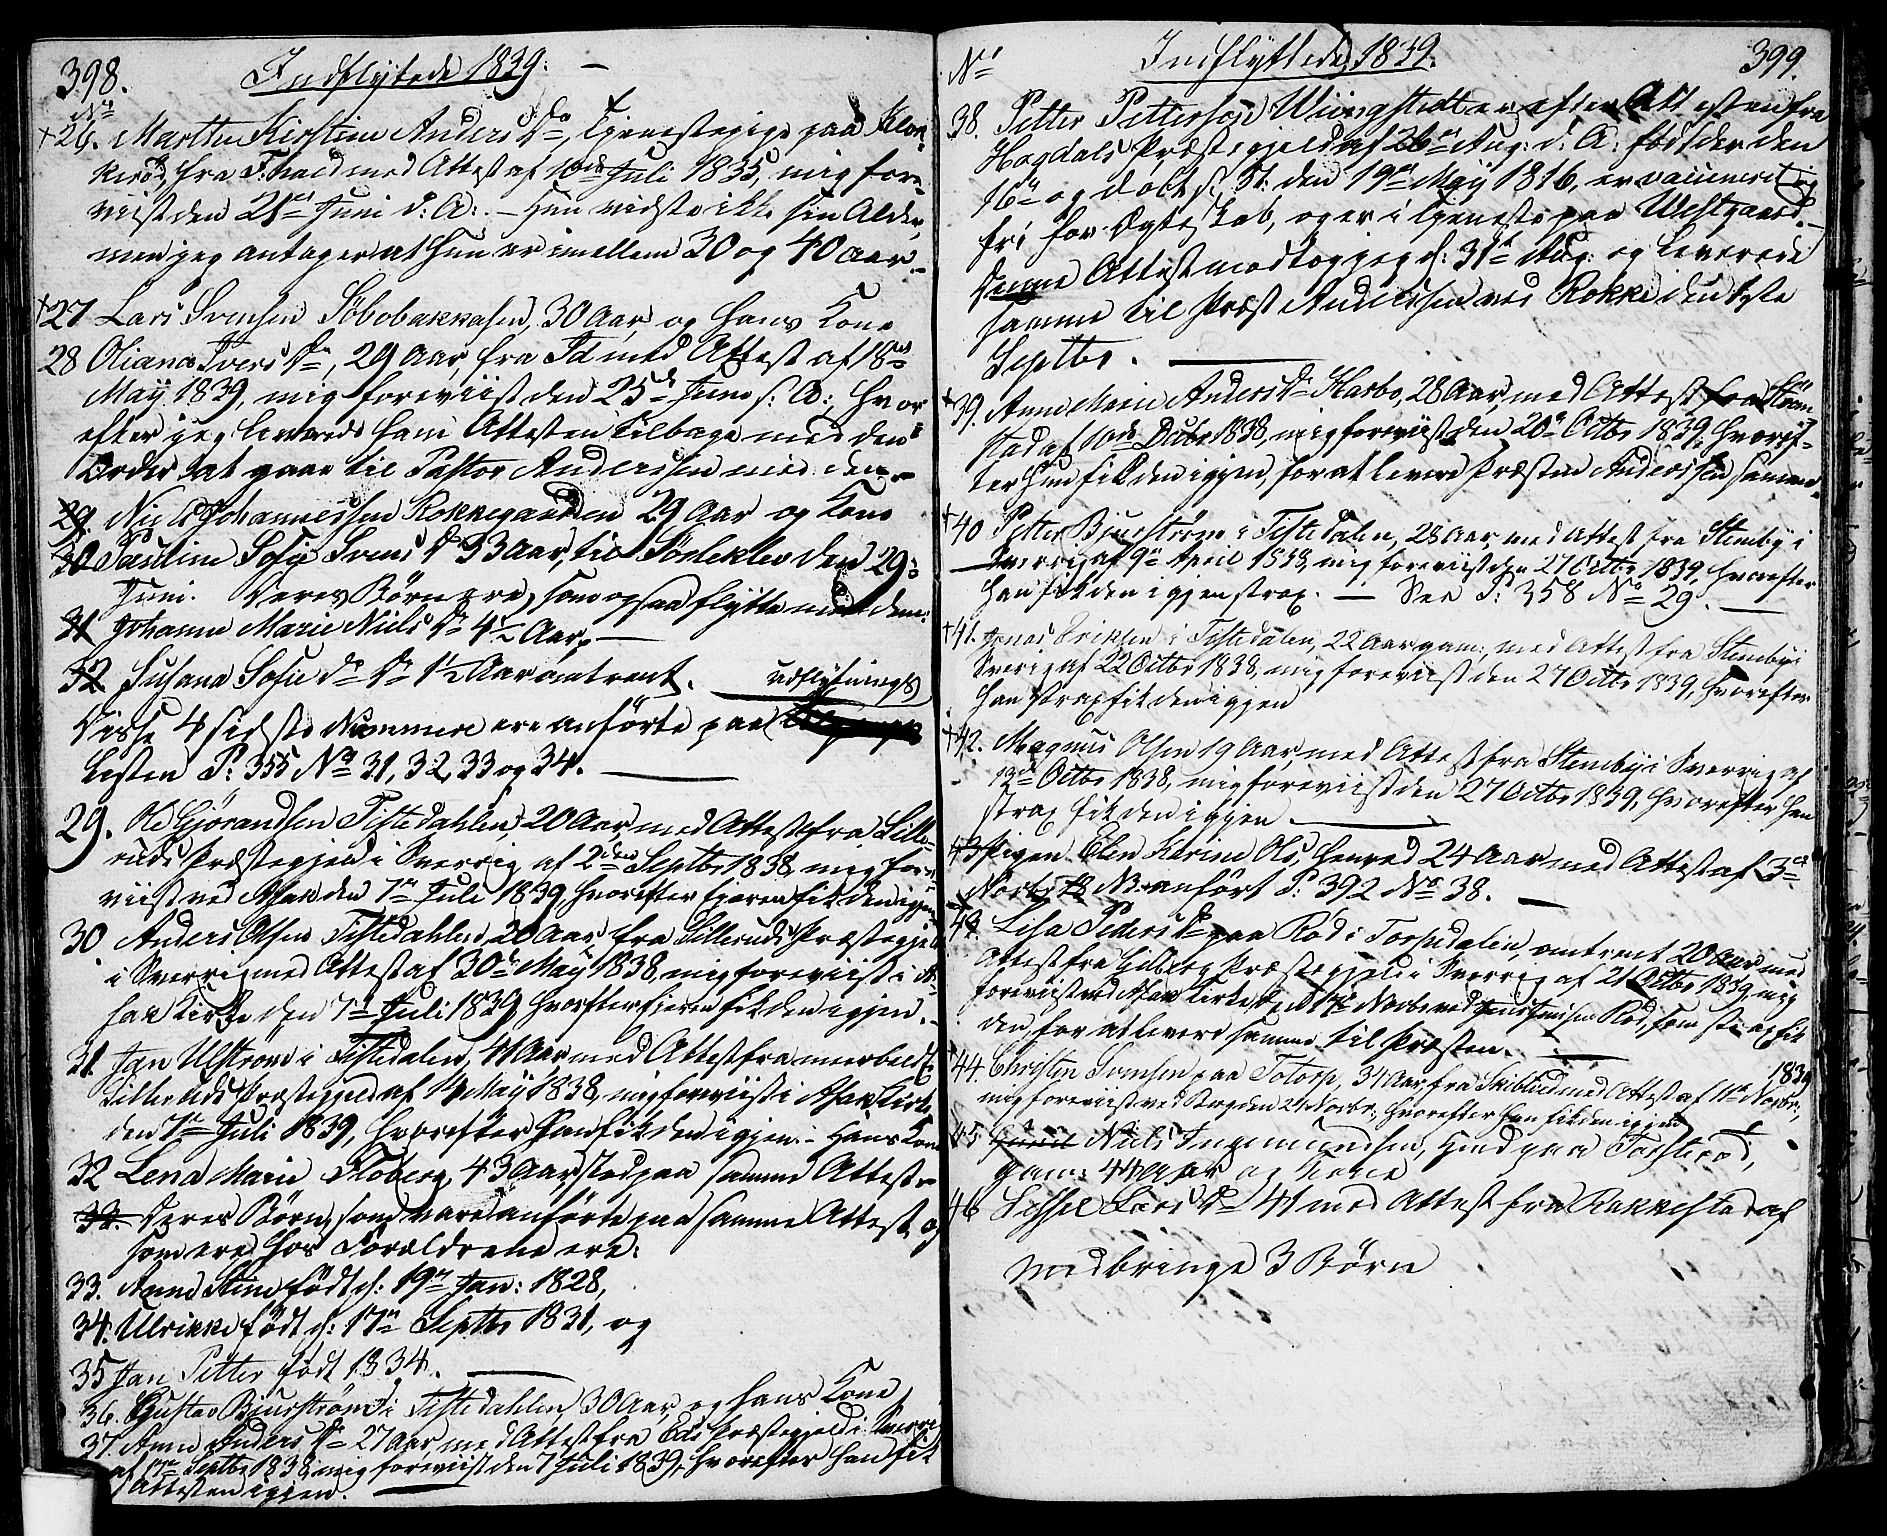 398.
Indflytede 1839. —
No
+26. Marthe Kirstine Anders Dr, Tjenestepige paa Klok-
kerød, fra F:hald med Attest af 10de Juli 1835, mig fore-
viist den 21de Juni d: A: — Hun vidste ikke sin Alder,
men jeg antager at hun er imellem 30 og 40 Aar.
+27 Lars Svensen 30 Aar, og hans Kone
28 Oliana Ivers Dr, 29 Aar, fra Id, med Attest af 18de
May 1839, mig foreviist den 25de Juni s: A:, hvor-
efter jeg leverede ham Attesten tilbage med den
Order at gaae til Pastor Anderssen med den.
29 Niels Johannessen Rokkegaarden 29 Aar og Kone
30 Pauline Sofie Svens Dr 33 Aar, til Sørlekler den 29de
Juni. Deres Børn ere, som ogsaa flytte med dem:
31 Johanne Marie Niels Dr 4½ Aar. —
32 Susana Sofie do Dr 1½ Aar omtrent. udflytnings
Disse 4 sidste Nummere ere anførte paa
Listen P: 355 No 31, 32, 33 og 34. —
29. Ole Gjørandsen Tistedahlen, 20 Aar, med Attest fra Lille-
ruds Præstegjeld i Sverrig af 2den Septbr 1838, mig fore-
viist ved Asak den 7de Juli 1839, hvorefter Ejeren fik den igjen
30 Anders Olsen Tistedahlen, 20 Aar, fra Silleruds Præstegjeld
i Sverrig med Attest af 30te May 1838, mig foreviist i A-
sak Kirke den 7de Juli 1839, hvorefter Ejeren fik den igjen. —
31. Jan Ulstrøm i Tistedalen, 41 Aar, med Attest fra
Silleruds Præstegjeld af 14 May 1838, mig foreviist i Asak Kirke
den 7de Juli 1839, hvorefter han fik den igjen. — Hans Kone
32 Lena Marie Floberg, 43 Aar, stod paa samme Attest.
33. Deres Børn, som vare anførte paa samme Attest, og
som ere hos Forældrene ere:
33. Anne Stine født d: 19de Jan: 1828,
34. Ulrikke født d: 17de Septbr 1831, og
35 Jan Petter født 1834. —
36. Gustav Bjurstrøm i Tistedahlen, 30 Aar, og hans Kone
37. Anne Anders Dr 27 Aar, med Attest fra Eds Præstegjeld i Sverrig
af 17de Septbr 1838, mig foreviist den 7 Juli 1839, hvorefter han fik
Attesten igjen. —
No
Indflyttede 1839.
399.
38. Petter Petterson Wiingstedt er efter Attesten fra
Hogdals Præstegjeld af 26de Aug: d: A: født der den
16de og døbt s: St: den 19de May 1816, er vaccineret og
fri for Ægteskab, og er i Tjeneste paa Westgaard. —
Denne Attest modtog jeg d: 31te Aug: og leverede
samme til Præst Anderssen ved Rokke den 1ste
Septbr. —
+39. Anne Marie Anders Dr Karbo, 28 Aar, med Attest fra Strøm-
stad af 10de Decbr 1838, mig foreviist den 20de Octbr 1839, hvoref-
ter hun fik den igjen, for at levere Præsten Anderssen samme.
+40 Petter Bjurstrøm i Tistedalen, 28 Aar, med Attest fra Steneby i
Sverrig af 9de April 1838, mig foreviist den 27 Octbr 1839, hvorefter
han fik den igjen strax. — See P: 358 No 29. —
+41. Jonas Eriksen i Tistedalen, 22 Aar gam:, med Attest fra Steneby i
Sverig af 22 Octbr 1838, mig foreviist den 27 Octbr 1839, hvorefter
han strax fik den igjen
+42. Magnus Olsen 19 Aar, med Attest fra Steneby i Sverrig af
13de Octbr 1838, mig foreviist den 27 Octbr 1839, hvorefter han
strax fik den igjen. —
43 Pigen Elen Karine Ols, 24 Aar med Attest af 3de
Novbr NB anført P: 392 No 38. —
43. Lisa Peders Dr paa Rød i Torpedalen, omtrent 20 Aar, med
Attest fra Præstegjeld i Sverrig af 21 Octbr 1839, mig
foreviist ved Asak Kirke den 17de Novbr ved Rød, som strax fik
den, for at levere samme til Præsten. —
+44. Christen Svensen paa Totorp, 34 Aar, fra Skibtved med Attest af 11te Novbr 1839
mig foreviist ved Berg den 24 Novbr., hvorefter han fik den igjen
45 Niels Ingemundsen, Huusmand paa Torsterød,
gam: 44 Aar og Kone
46 Sissel Lars Dr 41 med Attest fra Rakkestad af
medbringe 3 Børn